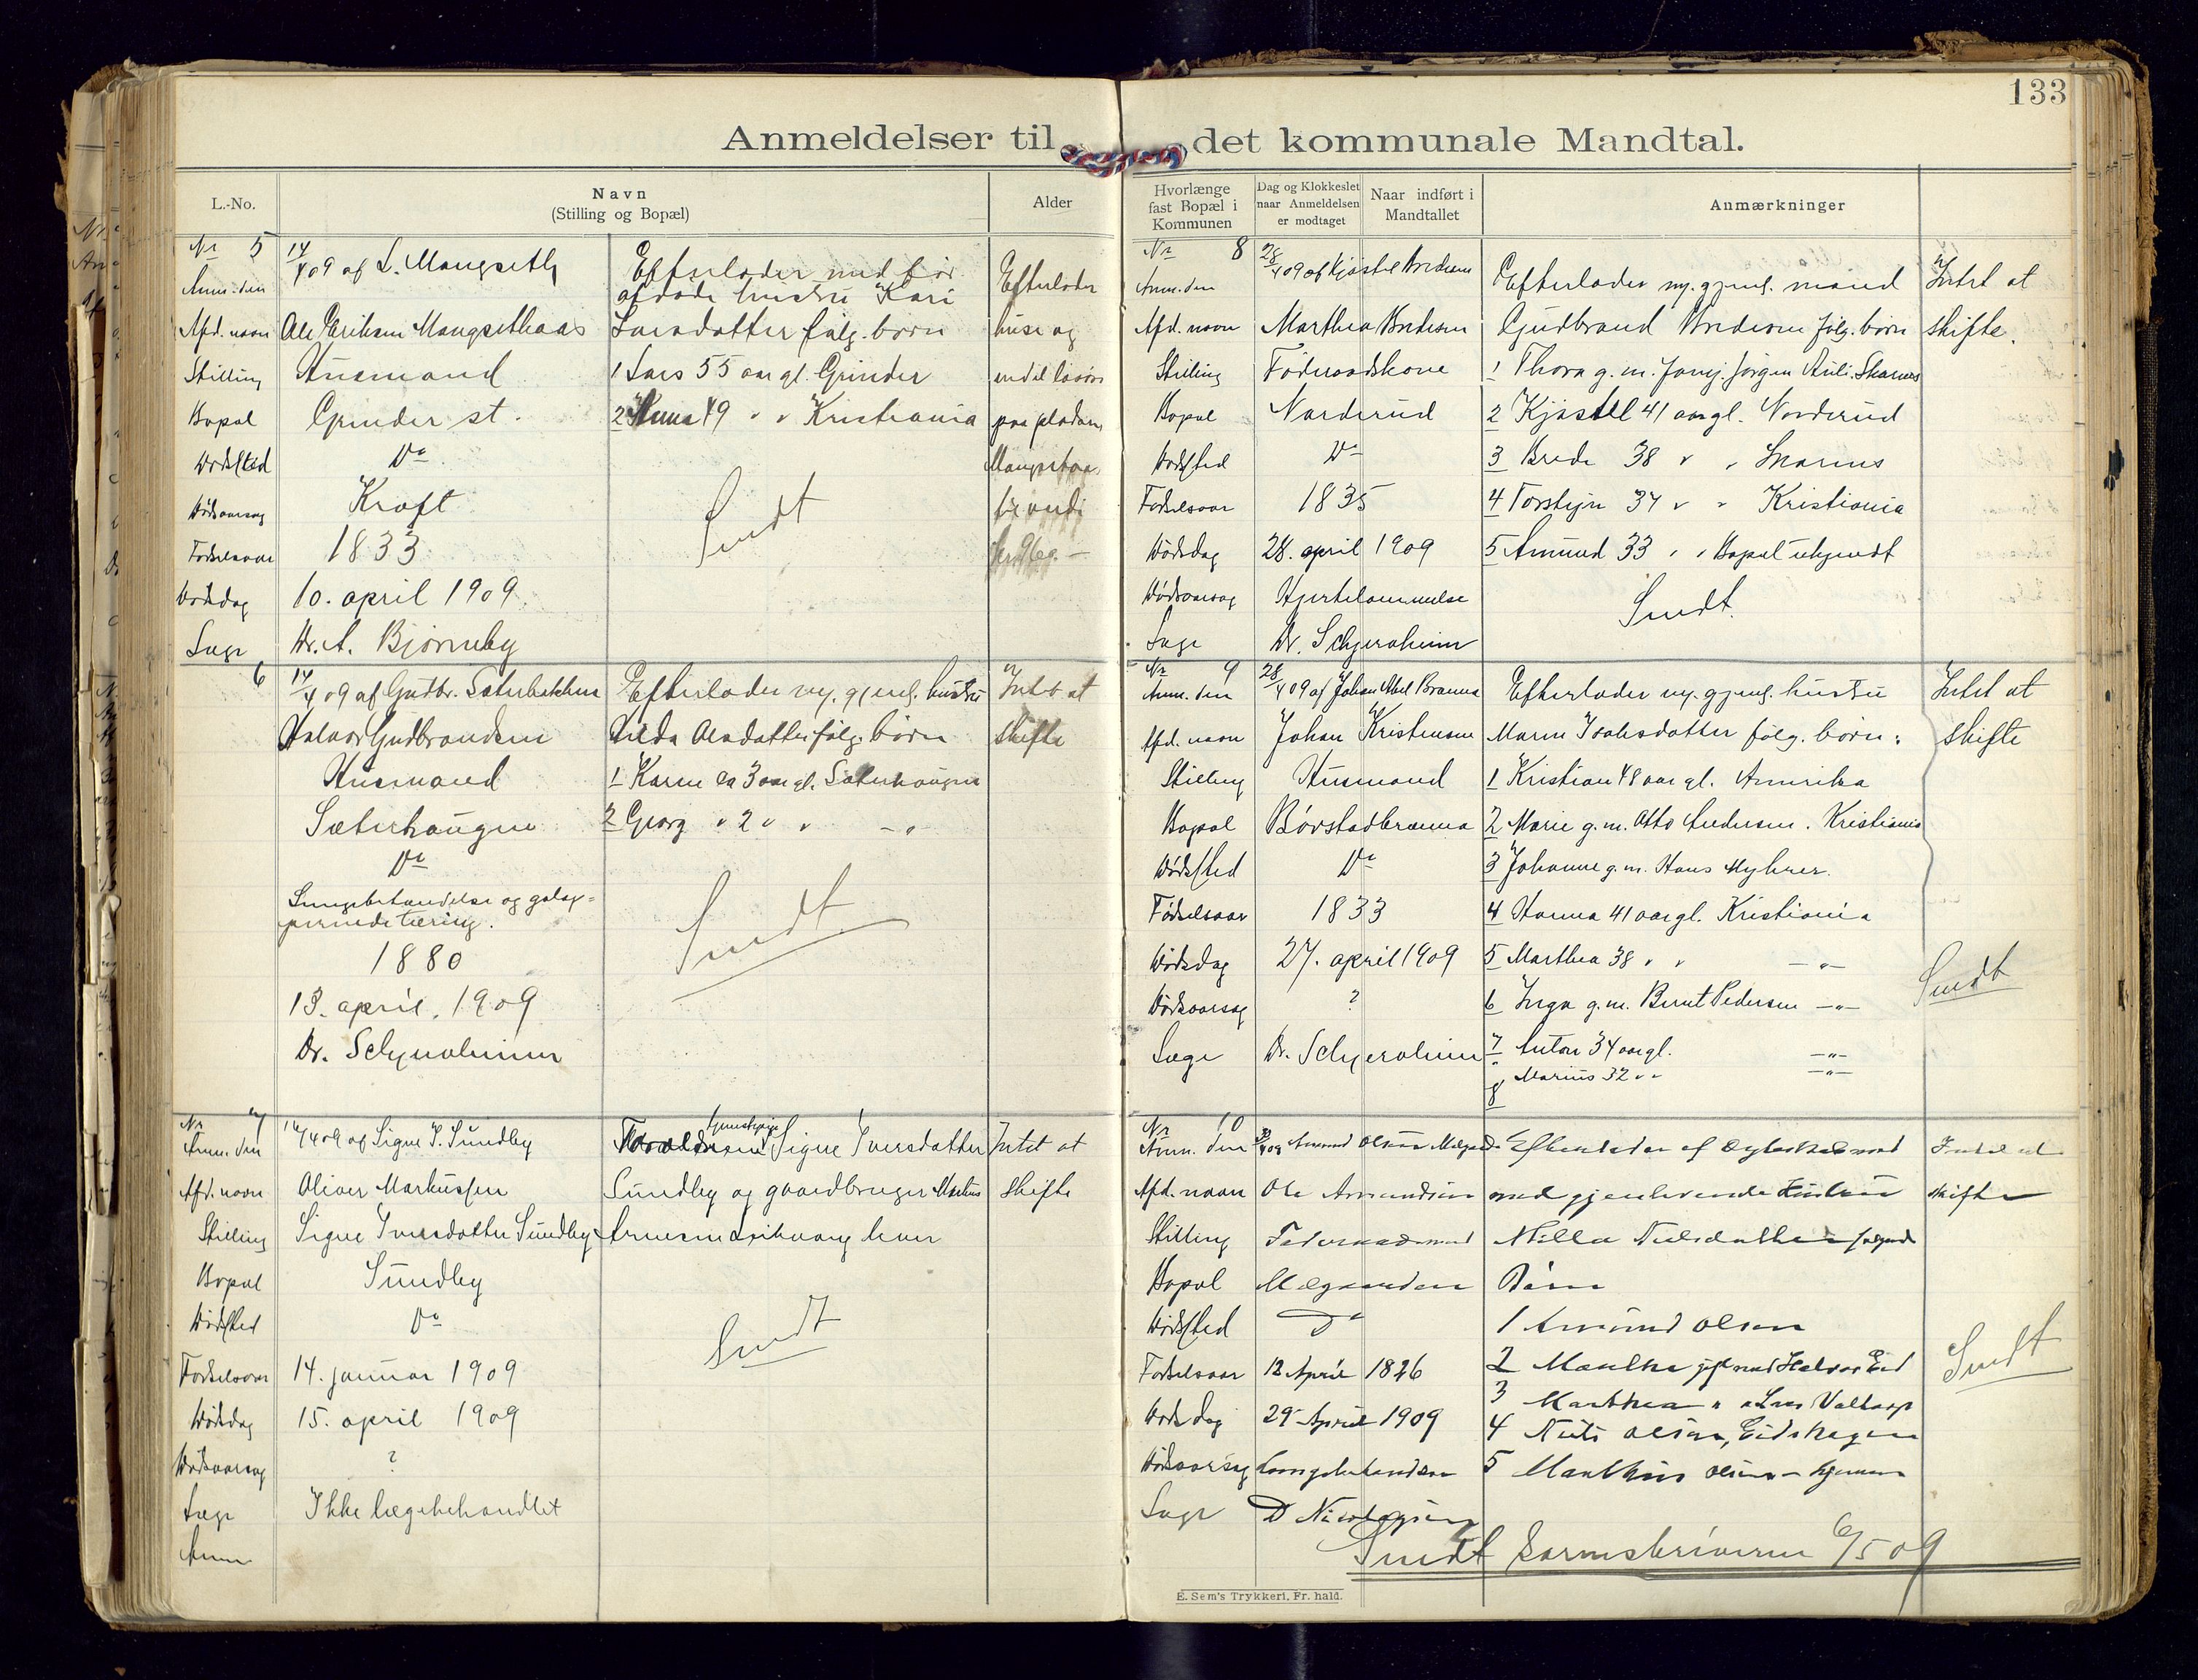 133
Anmeldelser til det kommunale Mandtal.
L.-No.
Navn
(Stilling og Bopæl)
Alder
Hvorlænge
fast Bopæl i
Kommunen
Dag og Klokkeslet
naar Anmeldelsen
er modtaget
Naar indført i
Mandtallet
Anmærkninger
Nr 5
Anm. den 14/4 09 af L. Mangseth
Afd. navn Ole Eriksen Mangsethaas
Stilling Husmand
Bopæl Grinder st.
Dødssted Do
Dødsaarsag Kræft
Fødselsaar 1833
Dødsdag 10. april 1909
Læge Dr. A. Bjørneby
Efterlader med før
afdøde hustru Kari
Larsdatter følg. børn
1 Lars 55 aar gl. Grinder
2 Anna 49 " " Kristiania
Sendt
Efterlader
huse og
endel løsøre
paa pladsen
6
14/4 09 af Gudbr. Sæterbakken
Halvor Gudbrandsen
Husmand
Sæterhaugen
Do
Lungebetændelse og galop-
perende tæring.
1880
13. april. 1909
Dr. Schjeroheim
Efterlader nu. gjenl. hustru
Hilda Olsdatter følg. børn
1 Karen ca 3 aar gl. Sæterhaugen
2 Georg " 2 " " - "
Sendt
Intet at
skifte
Nr 7
Anm. den 16/4 09 af Signe I. Sundby
Afd. navn Oliver Markussen
Stilling Signe Iversdatter Sundby
Bopæl Sundby
Dødssted Do
Fødselsaar 14. januar 1909
Dødsdag 15. april 1909
Dødsaarsag ?
Læge Ikke lægebehandlet
Anm
Forældrene tjenestepige Signe Iversdatter
Sundby og gaardbruger
Arnesen
Sendt
Intet at
skifte
Nr 8
Anm. den 28/4 09 af Kjøstel Bredesen
Afd. navn Marthea Bredesen
Stilling Føderaadskone
Bopæl Norderud
Dødssted Do
Fødselsaar 1835
Dødsdag 28. april 1909
Dødsaarsag Hjertelammelse
Læge Dr. Schjeroheim
Efterlader nu. gjenl. mand
Gudbrand Bredesen følg. børn
1 Thora g. m. Jørgen Skarnes
2 Kjøstel 41 aar gl. Norderud
3 Brede 38 " " Skarnes
4 Torstejn 37 " " Kristiania
5 Amund 33 " " Bopæl ukjendt
Sendt
Intet at
skifte.
Nr 9
Anm. den 28/4 09 af Johan Brænna
Afd. navn Johan Kristensen
Stilling Husmand
Bopæl Børstadbrænna
Dødssted Do
Fødselsaar 1833
Dødsdag 27. april 1909
Dødsaarsag ?
Læge Dr. Schjeroheim
Efterlader nu. gjenl. hustru
Maren Isaksdatter følg. børn:
1 Kristian 48 aar gl. Amerika
2 Marie g. m. Otto Andersen. Kristiania
3 Johanne g. m. Hans Myhrer.
4 Hanna 41 aar gl. Kristiania
5 Marthea 38 " " - " -
6 Inga g. m. Bernt Pedersen - " -
7 Anton 34 aar gl. - " -
8 Marius 32 " " - " -
Intet at
skifte
Sendt
Nr 10
Anm. den 30/4 09 Amund Olsen
Afd. navn Ole Amundsen
Stilling Føderaadsmand
Bopæl
Dødssted Do
Fødselsaar 12 April 1826
Dødsdag 29 April 1909
Dødsaarsag Lungebetændelse
Læge D
Efterlader af Ægteskab
med gjenlevende Hustru
Milla Nielsdatter følgende
Børn
1 Amund Olsen
2 Marthe gift med Halvor Eid
3 Marthea " " Lars
4 Niels Olsen, Eidskogen
5 Mathius Olsen - hjemme
Intet at
skifte
Sendt
Sendt Sorenskriveren 6/5 09
E. Sem's Trykkeri, Fr. hald.